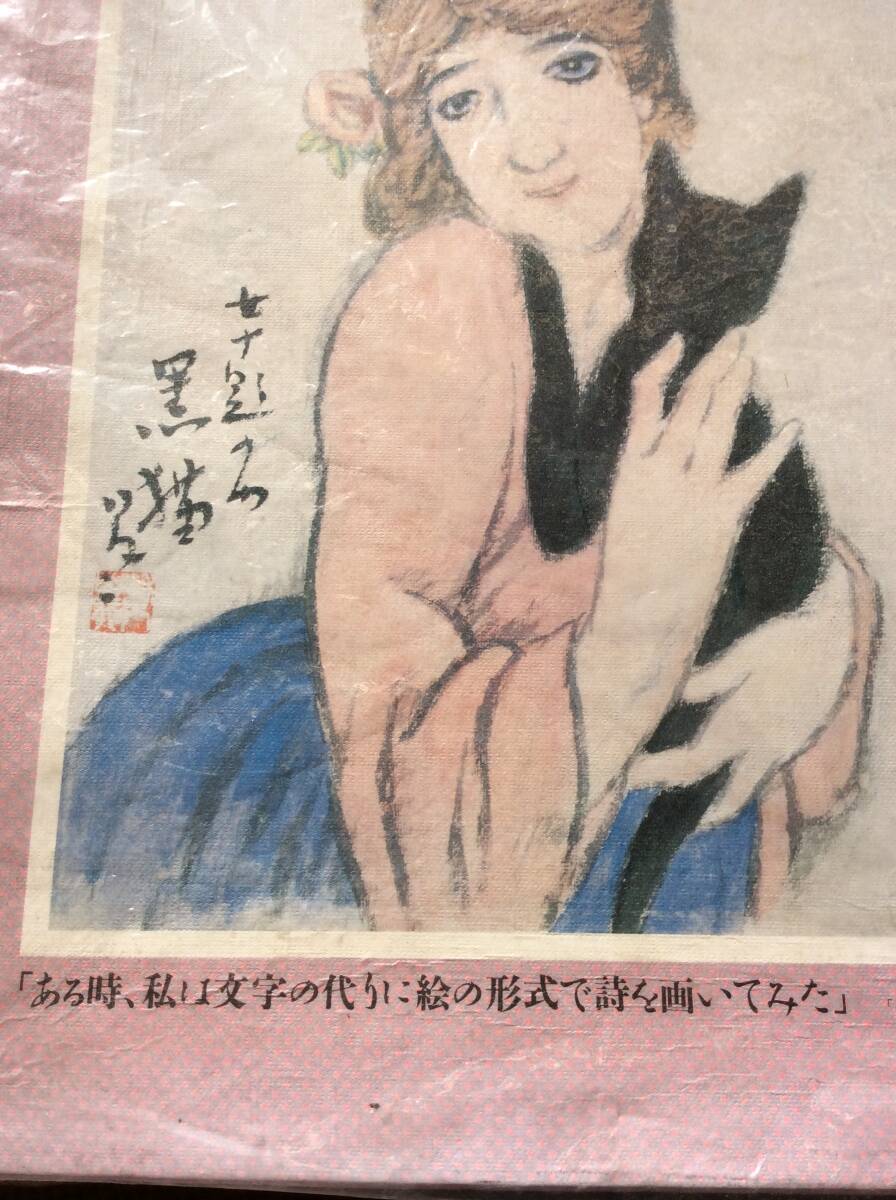 女十題の内
黒猫
「ある時、私は文字の代りに絵の形式で詩を画いてみた」